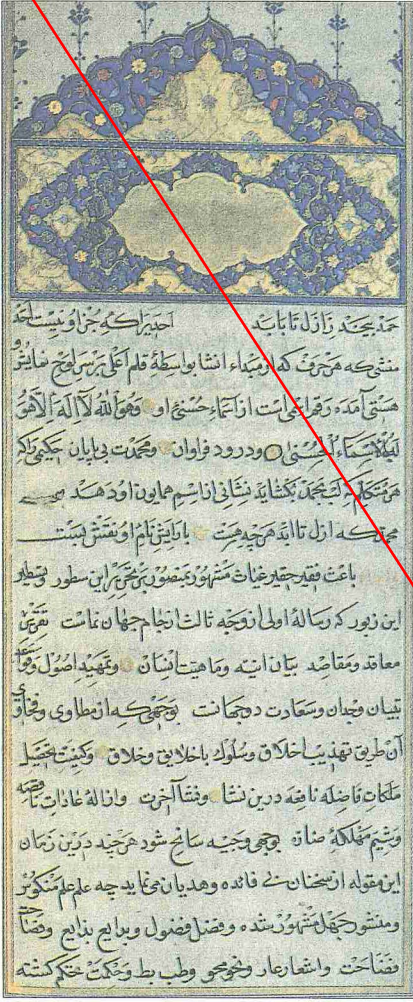 حمد بیحد ز ازل تا بابد احدیرا که جز او نیست احد
منشی که هر حرف که از مبداء انشا بواسطهٔ قلم اعلی بر سر لوح نمایش و
هستی آمده رقم اسمی است از اسماء حسنی او وهو الله لا اله الا هو
له الاسماء الحسنی ودرود فراوان ومحمدت بی پایان حکیمی را که
هر متکلم که لب بحمد بکشاید نشانی از اسم همایون او دهد
محمد که ازل تا ابد هر چه هست بارایش نام او نقش بست
باعث فقیر حقیر غیاث مشهور بمنصور بر تحریر این سطور و تسطیر
این زبور که رسالهٔ اولی از وجه ثالث از جام جهان نماست
معاقد ومقاصد بیان انیه وما هیت انسان وتمهید اصول وقواعد
تبیان وجدان وسعادت دو جهانست بوجهی که از مطاوی وفحاوی
آن طریق تهذیب اخلاق وسلوک با خلایق وخلاق وکیفیت تحصیل
ملکات فاضله نافعه درین نشا ونشا آخرت وازالهٔ عادات ناقصه
وشیم مهلکهٔ ضاره بوجهی وجیه سانح شود هر چند درین زمان
این مقوله از سخنان بی فائده وهدیان می نماید چه علم علم منکوس
ومنشور جهل مشهور شده وفضل فضول وبدایع بذایع وفصاحت
فضاحت واشعار عار ونحو محو وطب بط وحکمت ختکم کشته